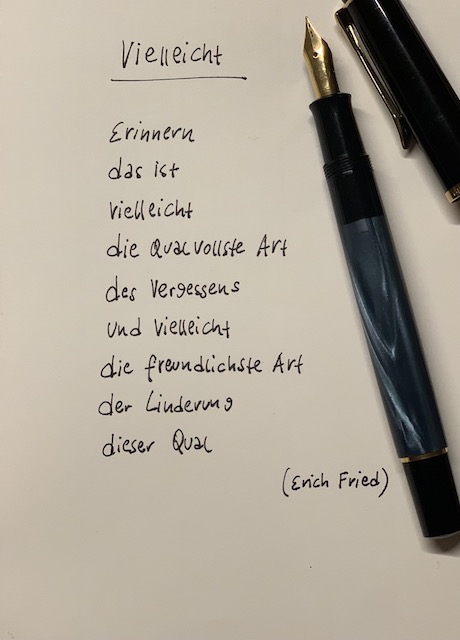 Vielleicht
Erinnern
das ist
vielleicht
die Qualvollste Art
des Vergessens
und vielleicht
die freundlichste Art
der Linderung
dieser Qual
(Erich Fried)